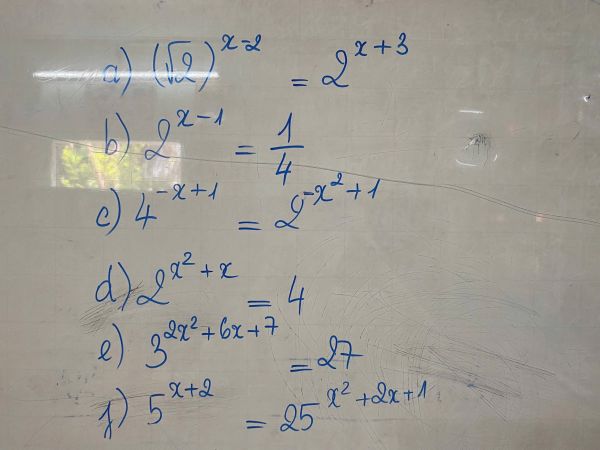 a) (√2)^(x-2) = 2^(x+3)
b) 2^(x-1) = 1/4
c) 4^(-x+1) = 2^(-x²+1)
d) 2^(x²+x) = 4
e) 3^(2x²+6x+7) = 27
f) 5^(x+2) = 25^(x²+2x+1)